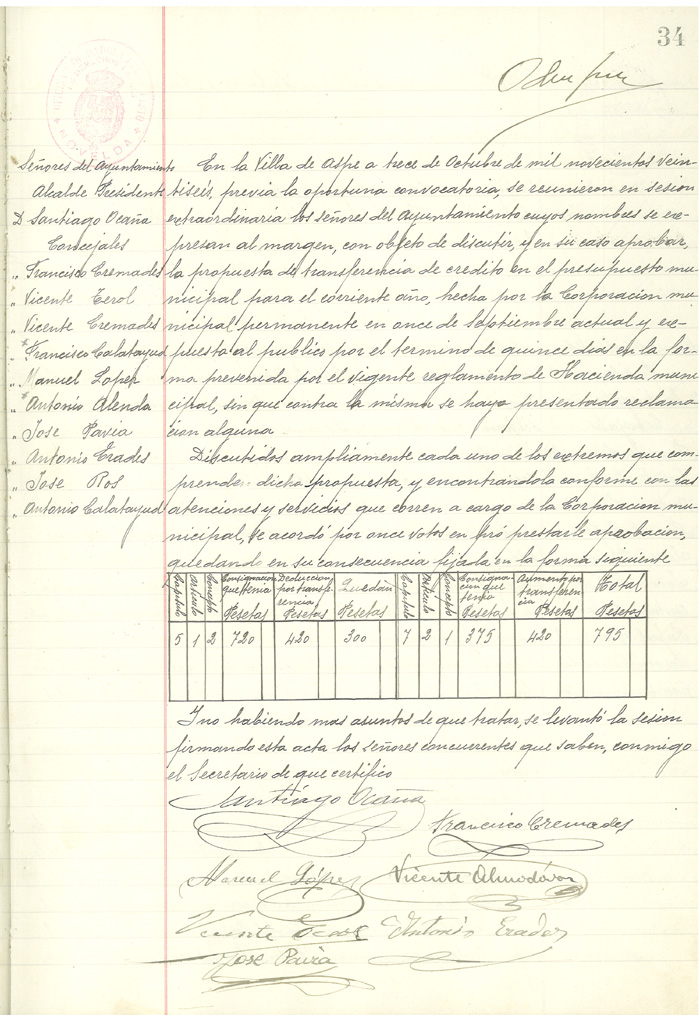 34
Señores del Ayuntamiento
Alcalde Presidente
D Santiago Ocaña
Concejales
" Francisco Cremades
" Vicente Terol
" Vicente Cremades
" Francisco Calatayud
" Manuel Lopez
" Antonio Alenda
" Jose Pavia
" Antonio Erades
" Jose Ros
" Antonio Calatayud
En la Villa de Aspe a trece de Octubre de mil novecientos vein-
tiseis, previa la oportuna convocatoria, se reunieron en sesion
extraordinaria los señores del Ayuntamiento cuyos nombres se ex-
presan al margen, con objeto de discutir, y en su caso aprobar,
la propuesta de transferencia de credito en el presupuesto mu-
nicipal para el corriente año, hecha por la Corporacion mu-
nicipal permanente en once de Septiembre actual y ex-
puesta al publico por el termino de quince dias en la for-
ma prevenida por el vigente reglamento de Hacienda muni-
cipal, sin que contra la misma se haya presentado reclama-
cion alguna.
Discutidos ampliamente cada uno de los extremos que com-
prende dicha propuesta, y encontrandola conforme con las
atenciones y servicios que corren a cargo de la Corporacion mu-
nicipal, se acordó por once votos en pró prestarle aprobacion,
quedando en su consecuencia fijada en la forma siguiente
Capitulo Articulo Concepto Consignacion que tenia Pesetas Deduccion por transfe-rencia Pesetas Quedan Pesetas Capitulo Articulo Concepto Consigna-cion que tenia Pesetas Aumento por transferen-cia Pesetas Total Pesetas
5 1 2 720 420 300 7 2 1 375 420 795
Y no habiendo mas asuntos de que tratar, se levantó la sesion
firmando esta acta los señores concurentes que saben, conmigo
el Secretario de que certifico
Santiago Ocaña
Francisco Cremades
Manuel López
Vicente Almodóvar
Vicente Terol
Antonio Erades
Jose Pavía